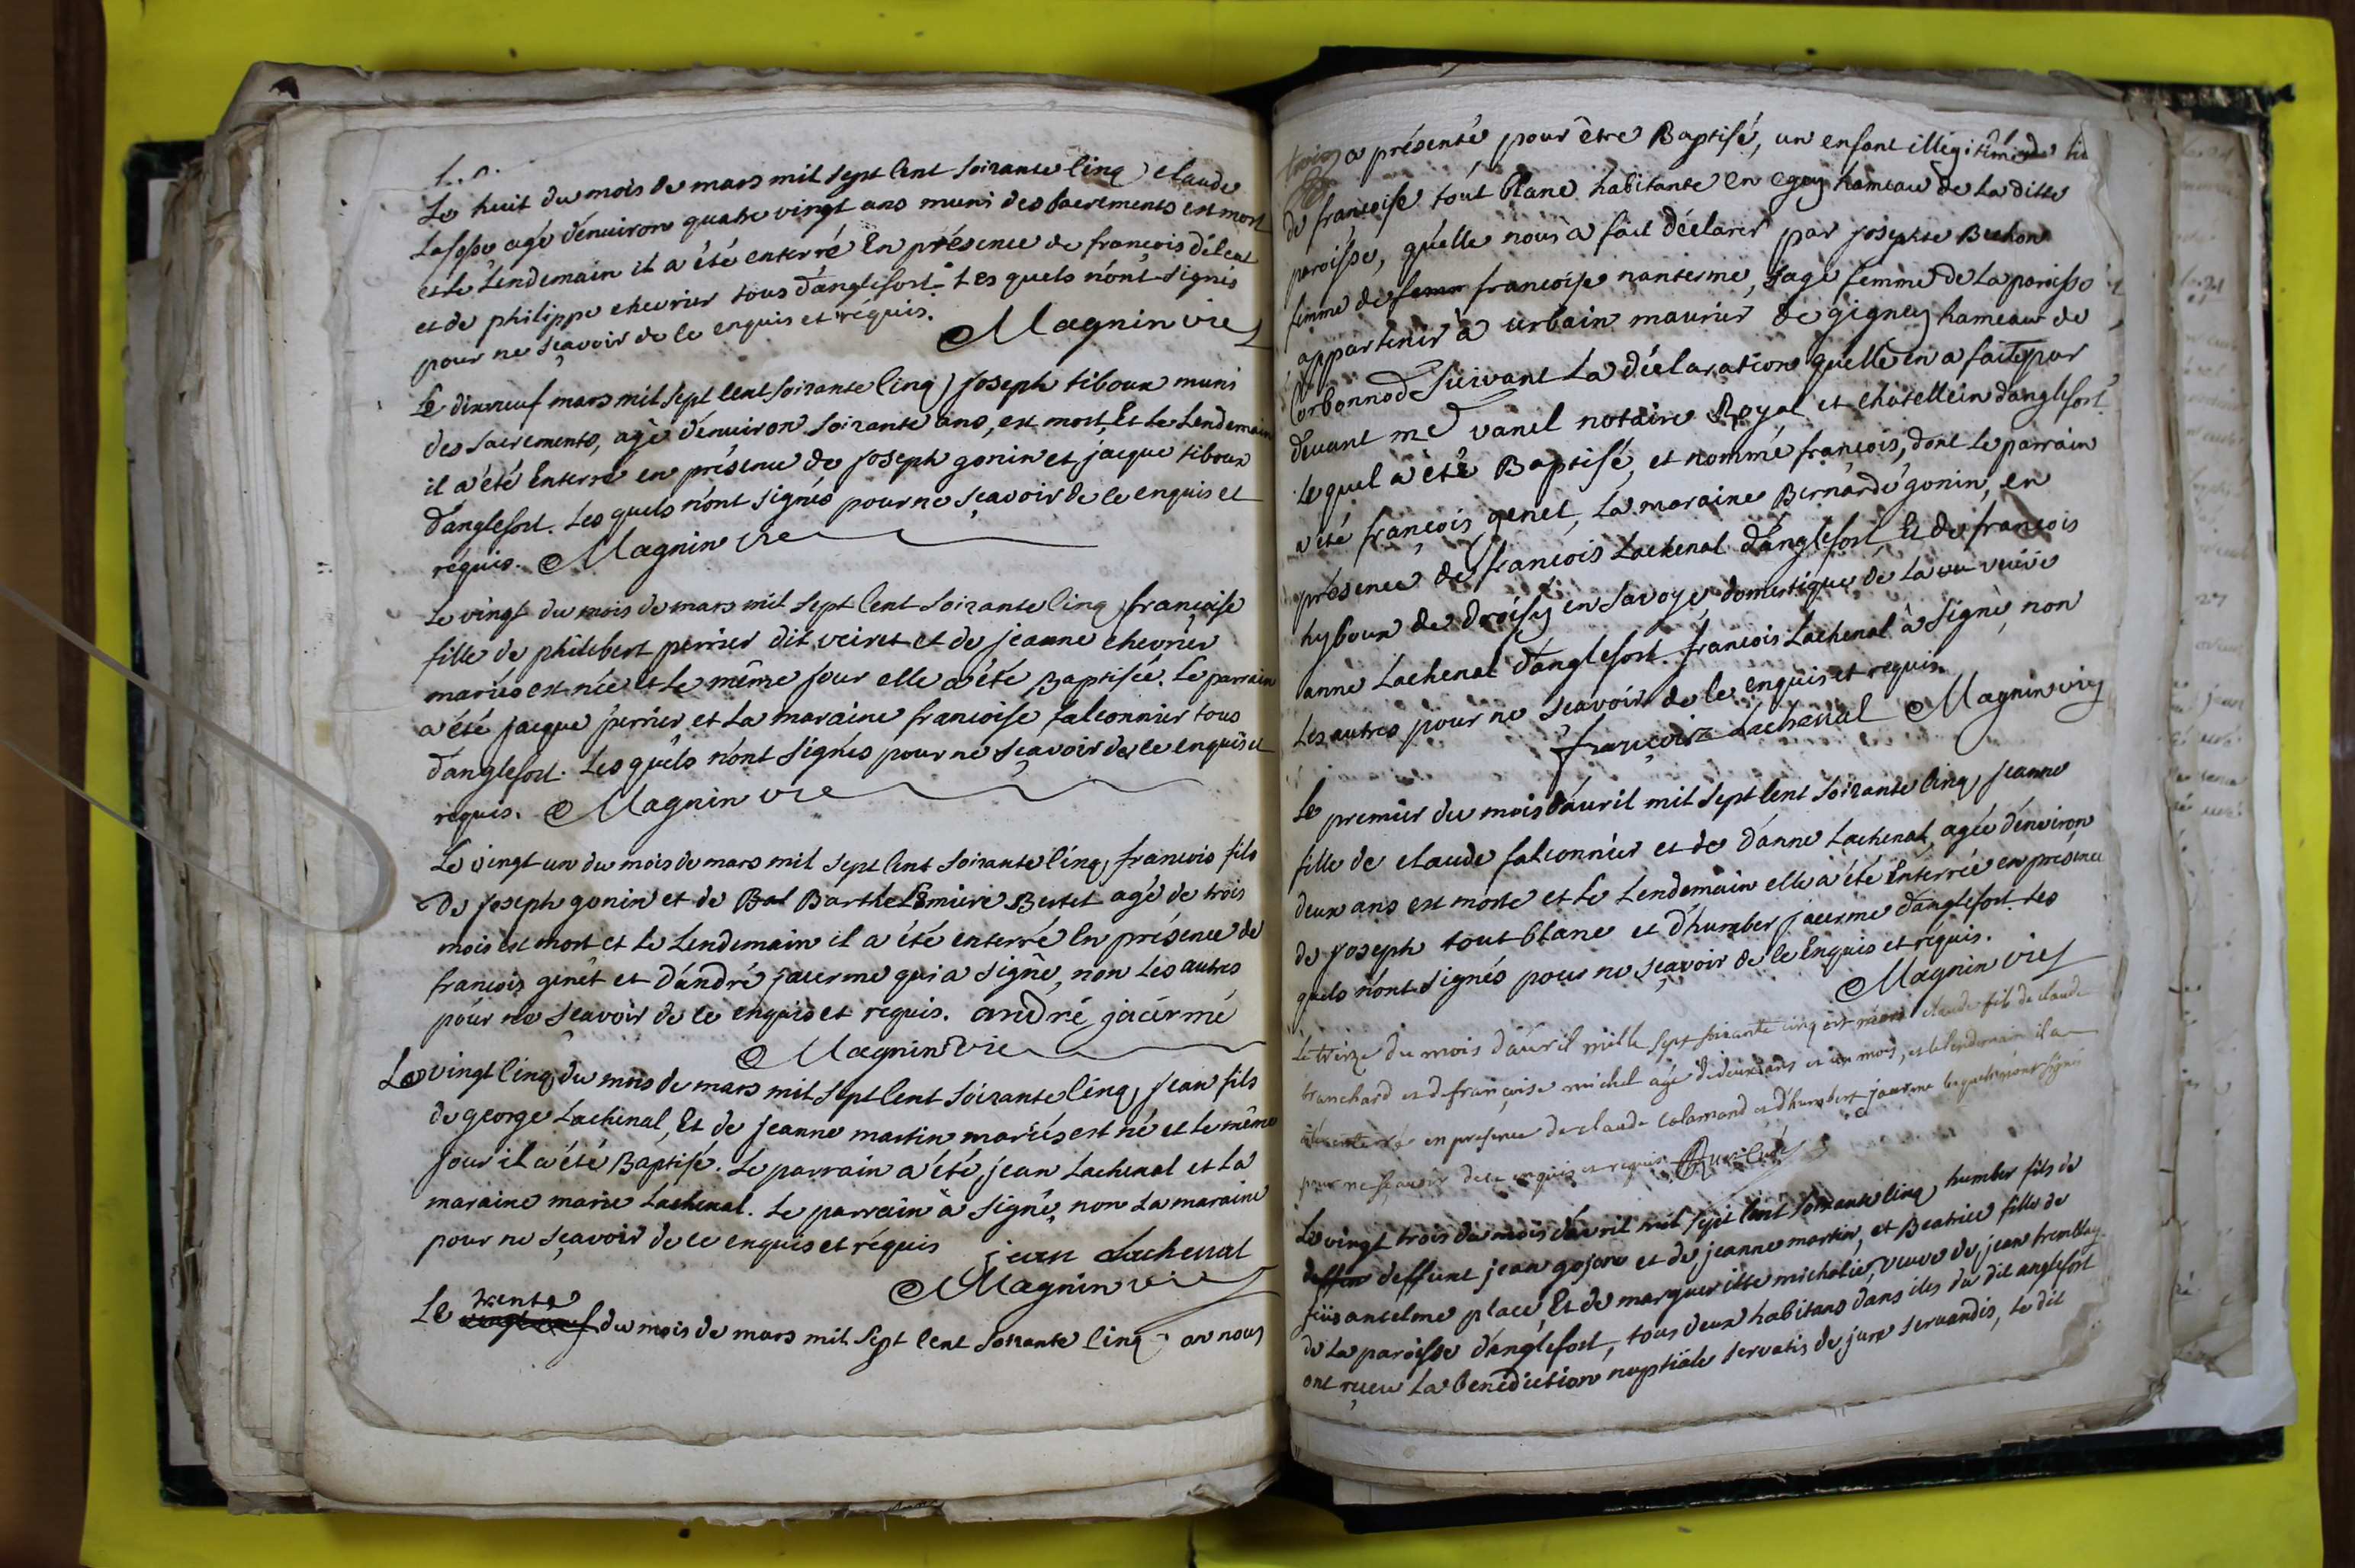 Le huit du mois de mars mil sept cent soixante cinq claude
Lasse agé d'enuiron quatre vingt ans muni des sacrements est mort
et le Lendemain il a été enterré En présence de francois
et de philippe cheurier tous d'anglefort. Les quels n'ont signés
pour ne sçavoir de ce enquis et réquis.
Magnin vic
Le dixneuf mars mil sept cent soixante cinq joseph tiboux muni
des sacrements, agé d'enuiron soixante ans, est mort Et le Lendemain
il a été Enterré en présence de joseph gonin et jacque tiboux
d'anglefort. Les quels n'ont signés pour ne sçavoir de ce enquis et
réquis. Magnin vic
Le vingt du mois de mars mil sept cent soixante cinq françoise
fille de philibert perrier dit veiret et de jeanne chevrier
mariés est née et le même jour elle a été Baptisée. Le parrain
a été jacque perrier et la maraine francoise falconnier tous
d'anglefort. Les quels n'ont signés pour ne sçavoir de ce enquis et
requis. Magnin vic
Le vingt un du mois de mars mil sept cent soixante cinq francois fils
De joseph gonin et de Bal Barthelemiere Bertet agé de trois
mois est mort et le Lendemain il a été enterré En présence de
francois genet et d'andré jacerme qui a signé, non les autres
pour ne sçavoir de ce enquis et requis. andré jacérme
Magnin vic
Le vingt cinq du mois de mars mil sept cent soixante cinq jean fils
de george Lachenal, Et de jeanne martin mariés est né et le même
jour il a été Baptisé. Le parrain a été jean Lachenal et la
maraine marie Lachenal. Le parrain a signé, non la maraine
pour ne sçavoir de ce enquis et réquis jean Lachenal
Magnin vic
trente
Le vingt neuf du mois de mars mil sept cent soixante cinq on nous
a présenté pour être Baptisé, un enfant illégitime
de françoise tout blanc habitante en egoy hameau de la ditte
paroisse, qu'elle nous a fait déclarer par josephte Bechon
femme de femm françoise nanterme, sage femme de la paroisse
appartenir à urbain maurier de gigney hameau de
Corbonnod suivant la déclaration qu'elle en a faite par
devant me vanel notaire Royal et chatellein d'anglefort.
Le quel a été Baptisé, et nommé françois, dont le parrain
a été françois genet, la maraine Bernarde gonin, en
présence de francois Lachenal d'anglefort Et de francois
hyboux de droisy en savoye, domestique de la veuve
anne Lachenal d'anglefort. francois Lachenal a signé, non
Les autres pour ne sçavoir de ce enquis et requis
françois Lachenal Magnin vic
Le premier du mois d'auril mil sept cent soixante cinq jeanne
fille de claude falconnier et de d'anne Lachenal, agée d'enuiron
deux ans est morte et le Lendemain elle a été Enterrée en présence
de joseph tout blanc et d'humber jacerme d'anglefort. Les
quels n'ont signés pour ne sçavoir de ce Enquis et réquis.
Magnin vic
Le treize du mois d'auril mille sept soixante cinq est mort claude fils de claude
branchard et de françoise michel agé de deux ans et un mois, et le lendemain il a
été enterré en presence de claude calamand et d'humbert jacerme lesquels n'ont signé
pour ne sçauoir de ce enquis et requis
Le vingt trois du mois d'avril mil sept cent soixante cinq humber fils de
deffun deffunt jean gojon et de jeanne martin, et Beatrice fille de
feu antelme place, Et de marguerite michalier, veuve de jean tremblay
de la paroisse d'anglefort, tous deux habitans dans iles du dit anglefort
ont reçeu la benediction nuptiale servatis de jure servandis, le dit